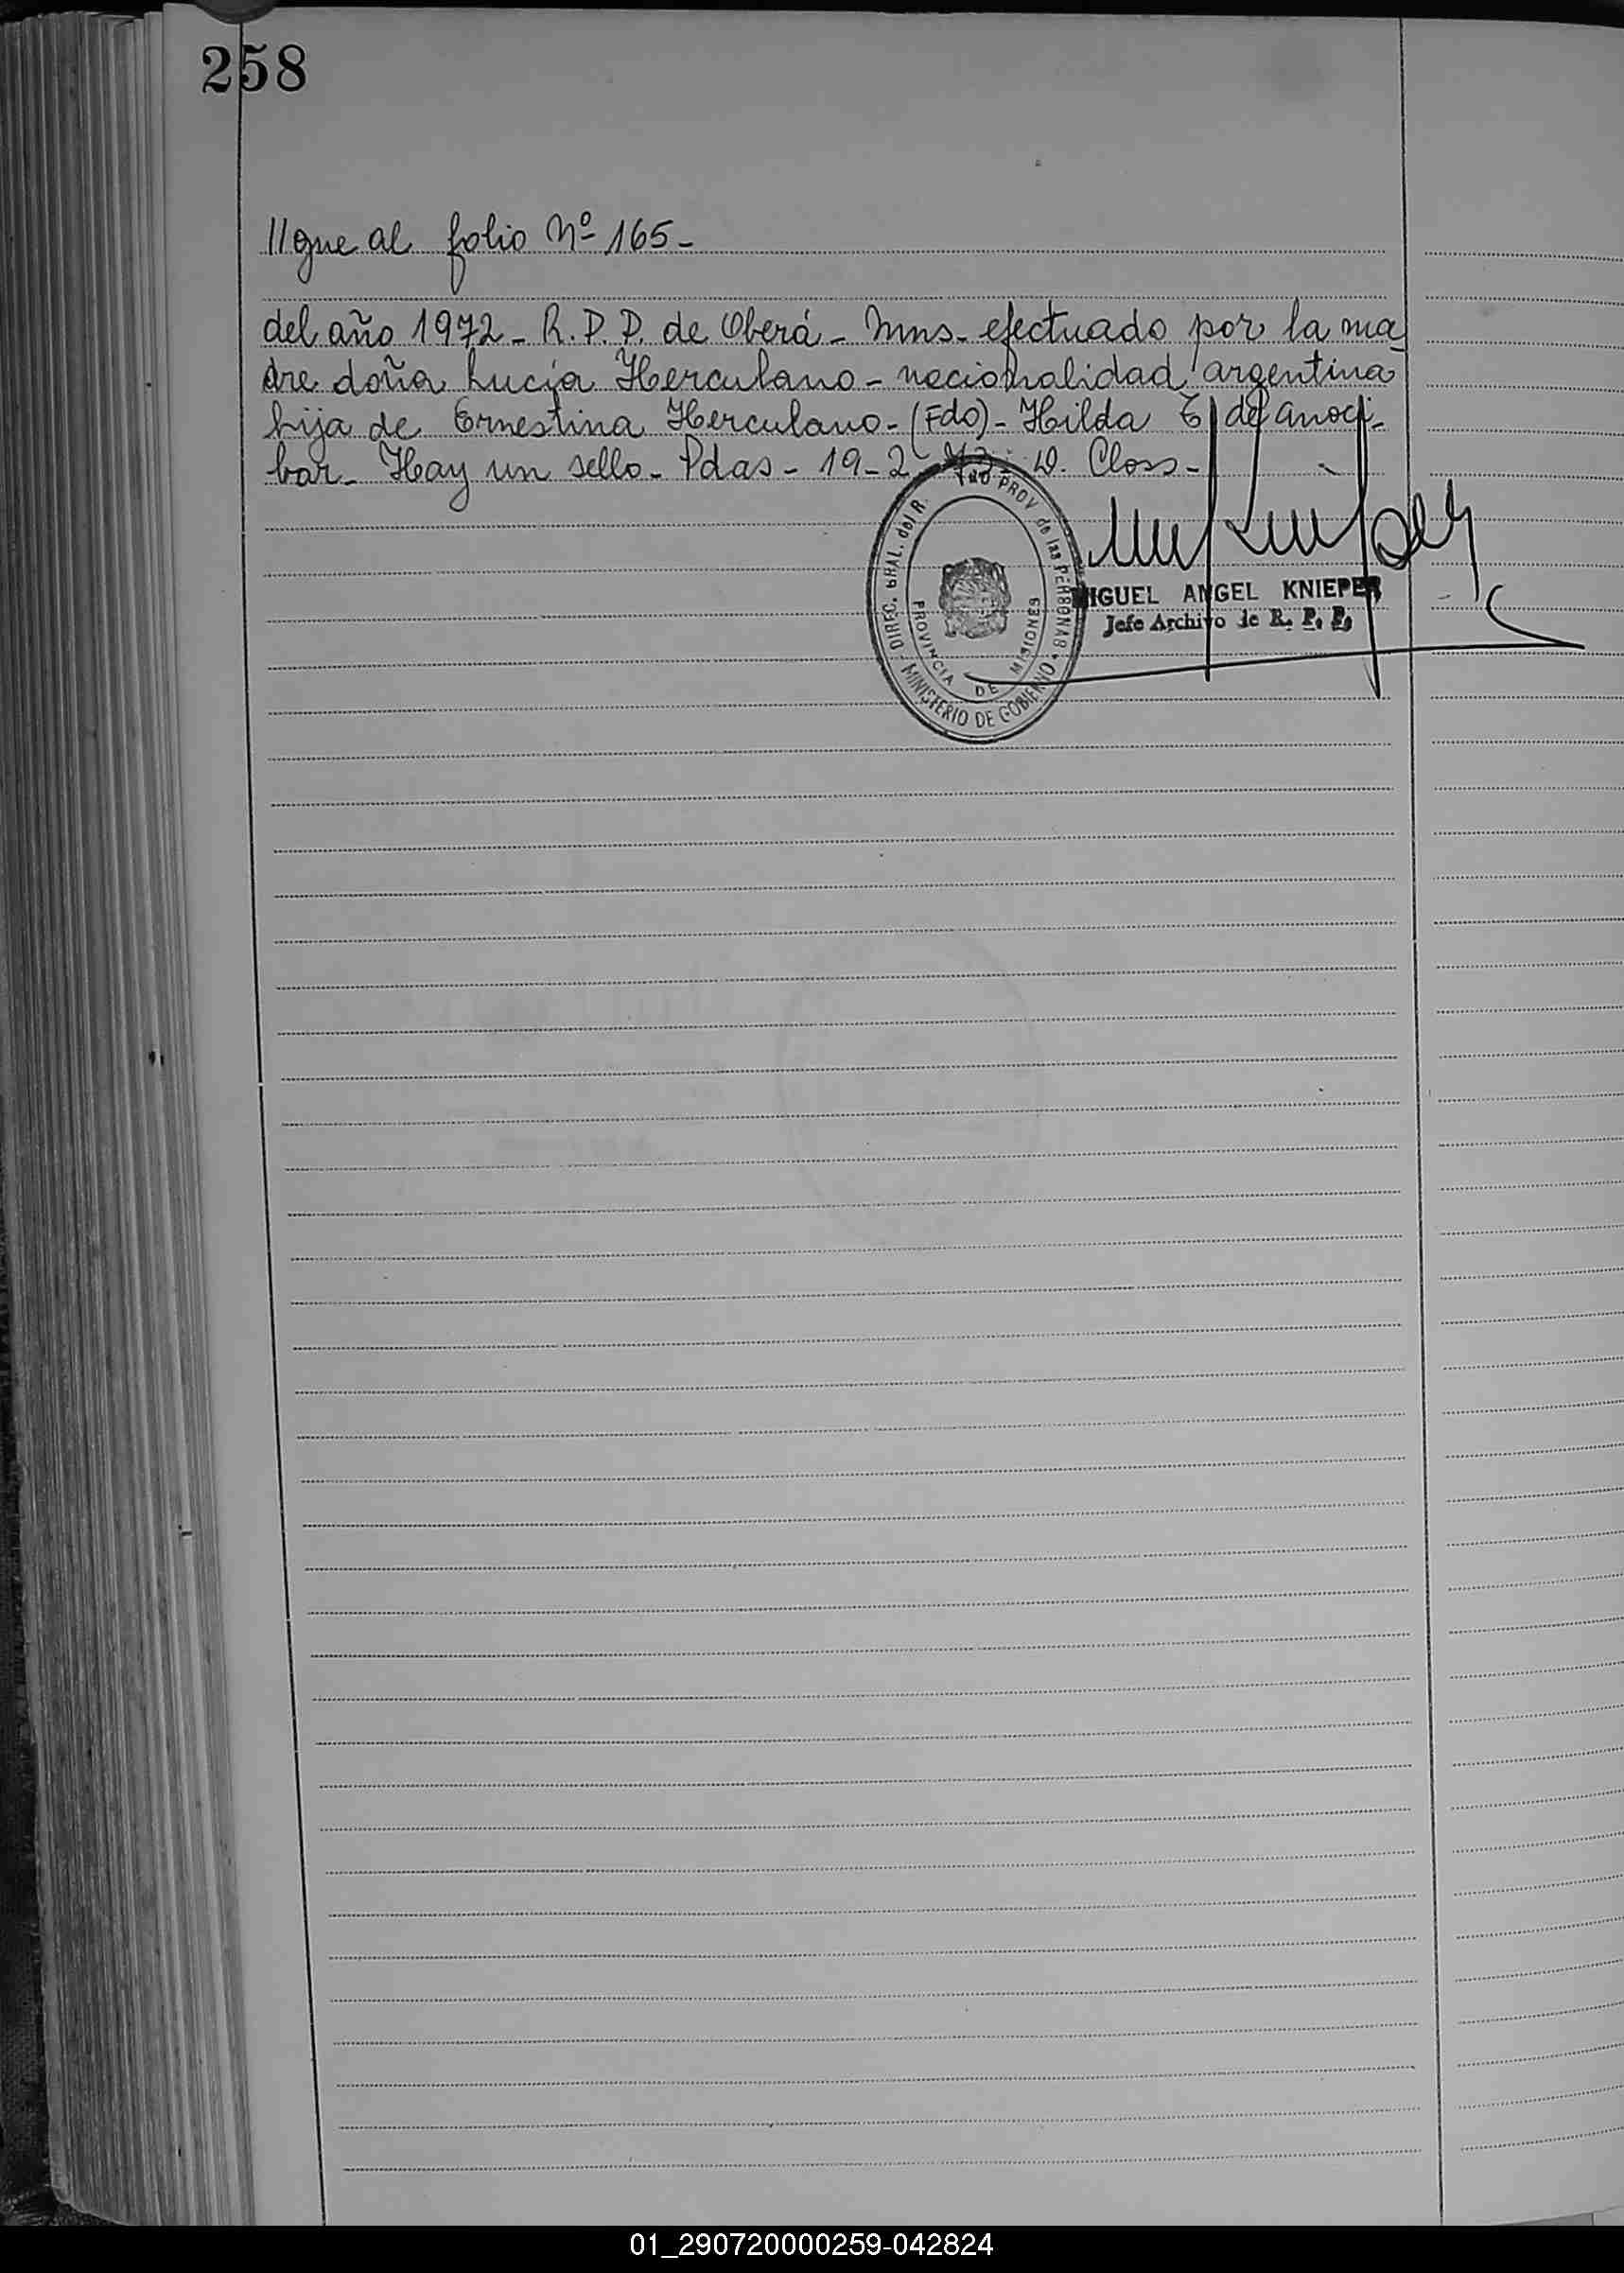 258
//gue al folio Nº 165-
del año 1972- R.P.P. de Oberá- Mns- efectuado por la ma
dre doña Lucía Herculano- nacionalidad argentina
hija de Ernestina Herculano- (Fdo)- Hilda E. de Anoci-
bar- Hay un sello- Pdas- 19-2-73- D. Closs-
DIREC. GRAL. del R. PROV de las PERSONAS
MINISTERIO DE GOBIERNO
PROVINCIA DE MISIONES
MIGUEL ANGEL KNIEPER
Jefe Archivo de R. P. P.
01_290720000259-042824